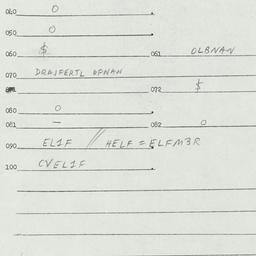 040 0
050 0
060 $ 061 OLBNAN
070 DRAIFERTL OPNAN
072 $
080 0
081 — 082 0
090 EL1F // HELF = ELFM3R
100 CVEL1F